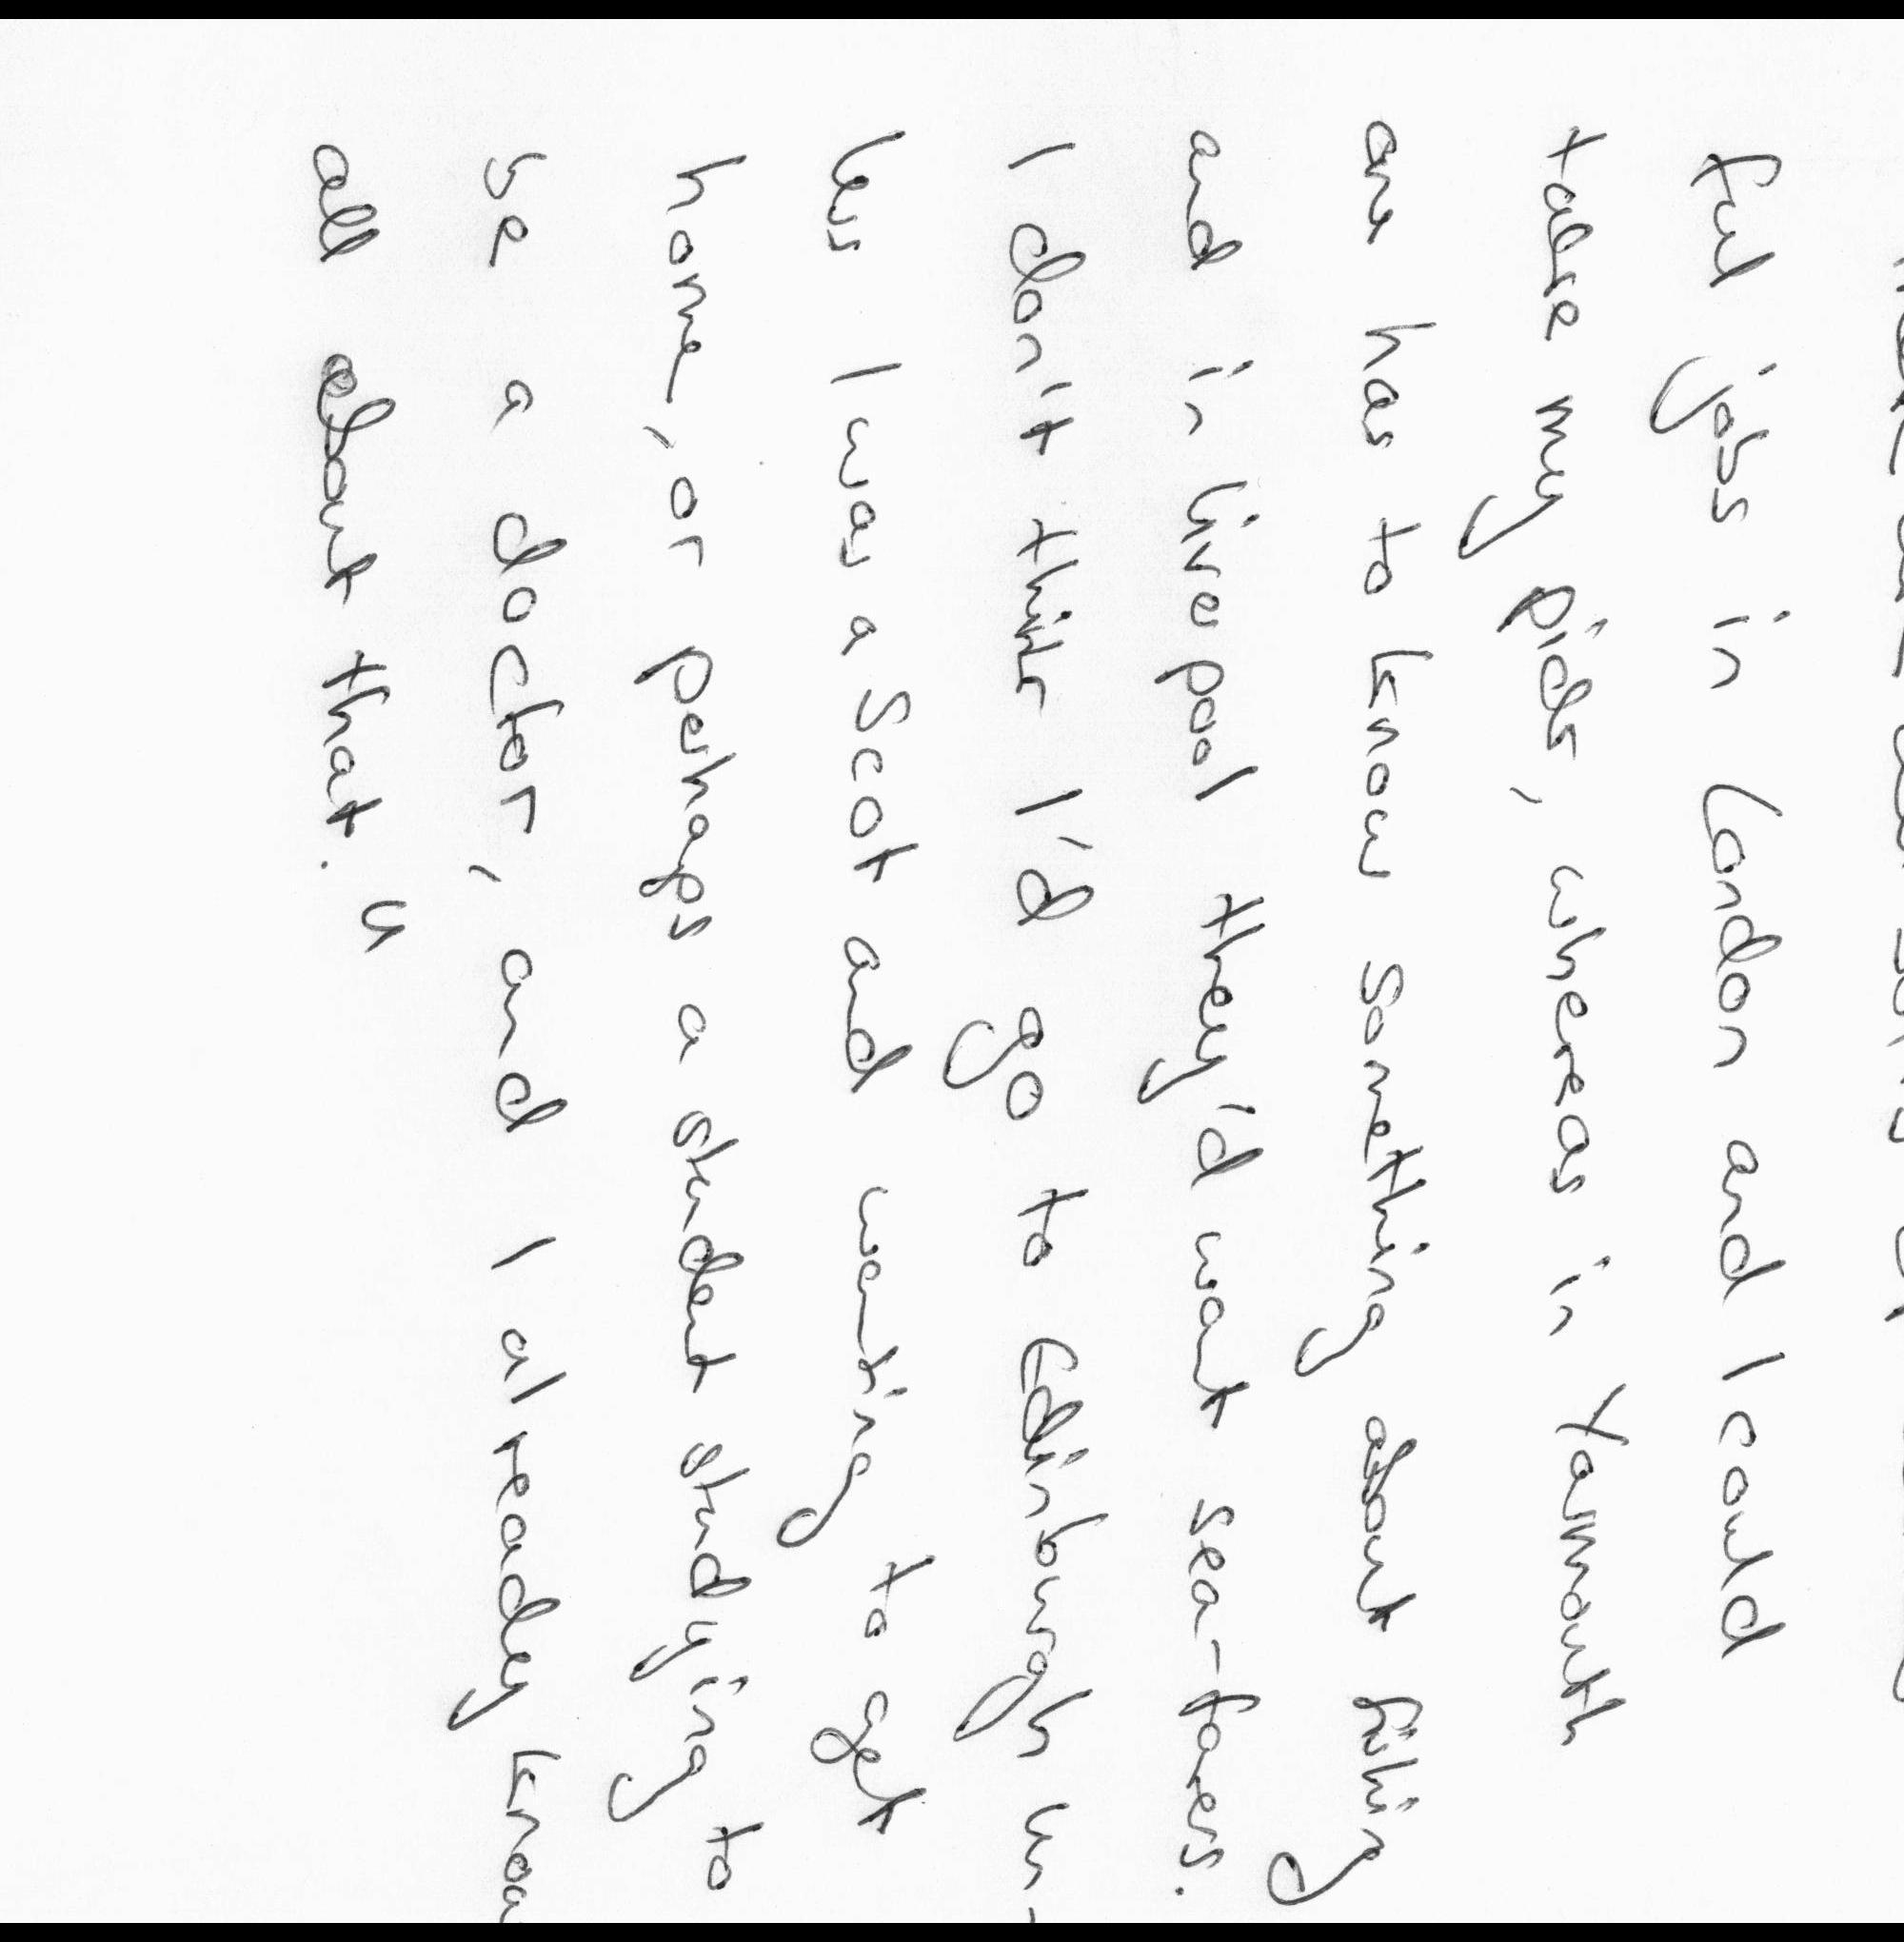 ful jobs in London and I could
take my pick, whereas in Yarmouth
one has to know something about fishing
and in Liverpool they'd want sea-fares.
I don't think I'd go to Edinburgh un-
less I was a Scot and wanting to get
home, or perhaps a student studying to
be a doctor, and I already know
all about that."